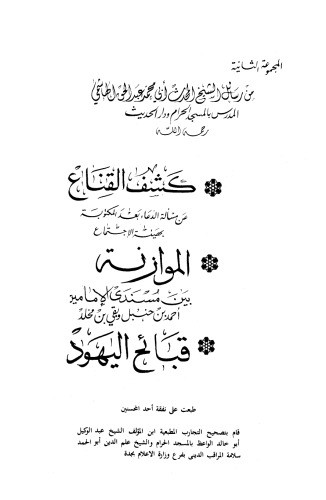 المجموعة الثانية
من رسائل الشيخ المحدث أبي محمد عبد الحق الهاشمي
المدرس بالمسجد الحرام ودار الحديث
رحمه الله
كشف القناع
عن مسألة الدعاء بعد المكتوبة
بهيئة الاجتماع
الموازنة
بين مسندي الإمامين
أحمد بن حنبل وبقي بن مخلد
قبائح اليهود
طبعت على نفقة أحد المحسنين
قام بتصحيح التجارب المطبعية ابن المؤلف الشيخ عبد الوكيل
أبو خالد الواعظ بالمسجد الحرام والشيخ علم الدين أبو الحمد
سلامة المراقب الديني بفرع وزارة الاعلام بجدة